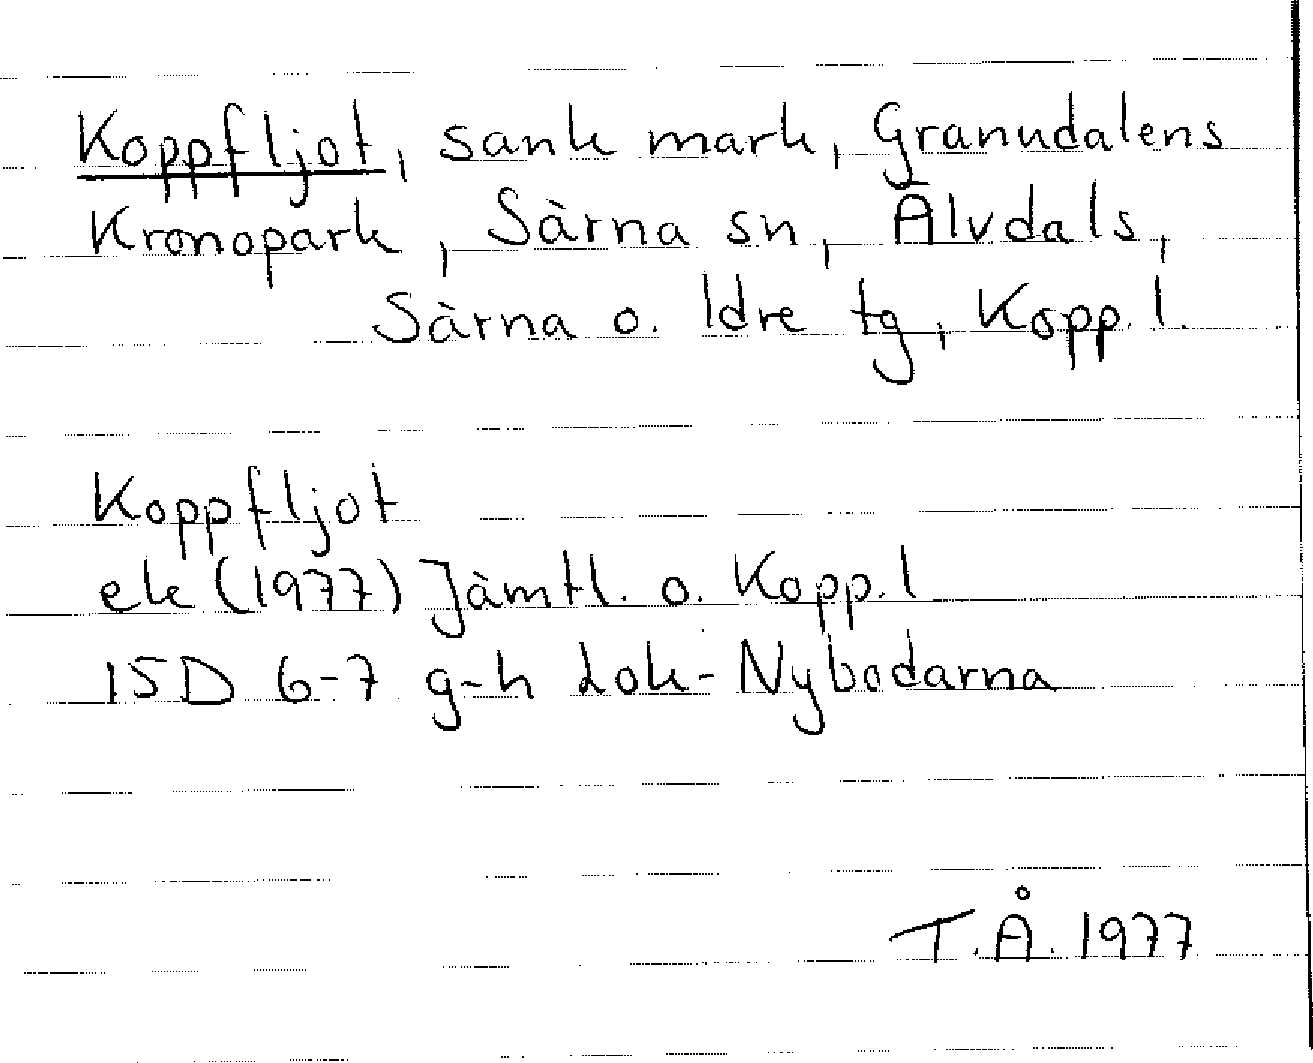 Koppfljot, sank mark, Granudalens
Kronopark, Särna sn, Älvdals,
Särna o. Idre tg, Kopp. l.
Koppfljot
ek (1977) Jämtl. o. Kopp. l
15D 6-7 g-h Lok-Nybodarna
T.Å. 1977